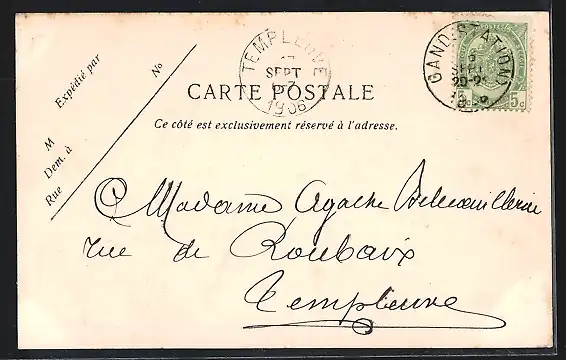 Expédié par
No
M
Dem. à
Rue
TEMPLEUVE
SEPT
1906
GAND (STATION)
5c
CARTE POSTALE
Ce côté est exclusivement réservé à l'adresse.
Madame Agache
rue de Roubaix
Templeuve